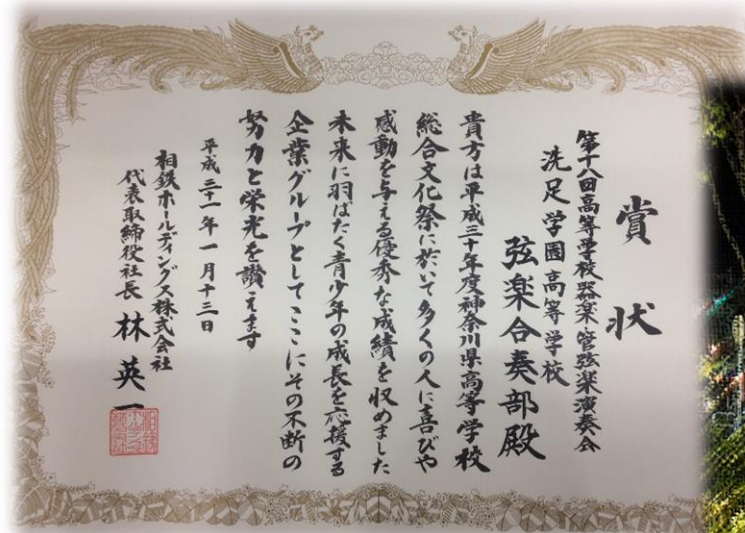 賞状
第十八回高等学校器楽・管弦楽演奏会
洗足学園高等学校
弦楽合奏部殿
貴方は平成三十年度神奈川県高等学校
総合文化祭に於いて多くの人に喜びや
感動を与える優秀な成績を収めました
未来に羽ばたく青少年の成長を応援する
企業グループとしてここにその不断の
努力と栄光を讃えます
平成三十一年一月十三日
相鉄ホールディングス株式会社
代表取締役社長 林英一